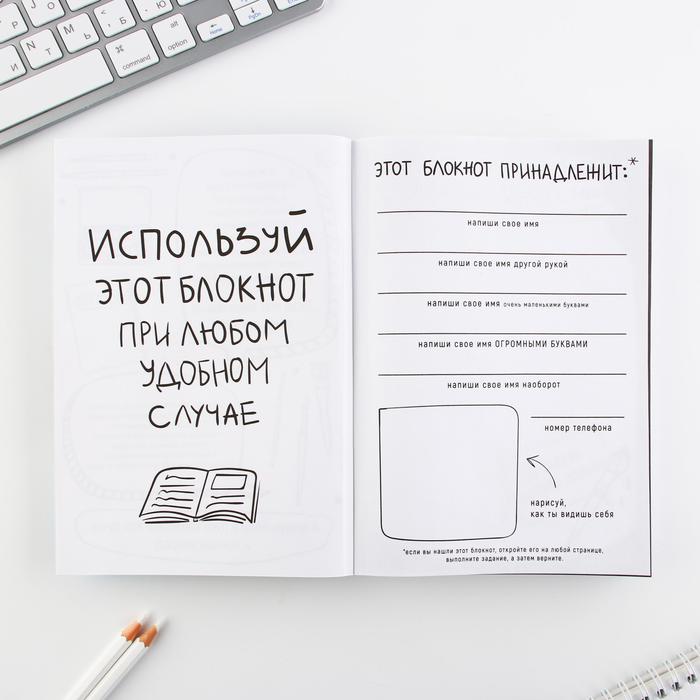 command
alt
option
Home
PgDn
End
ИСПОЛЬЗУЙ
ЭТОТ БЛОКНОТ
ПРИ ЛЮБОМ
УДОБНОМ
СЛУЧАЕ
ЭТОТ БЛОКНОТ ПРИНАДЛЕЖИТ:*
напиши свое имя
напиши свое имя другой рукой
напиши свое имя очень маленькими буквами
напиши свое имя ОГРОМНЫМИ БУКВАМИ
напиши свое имя наоборот
номер телефона
нарисуй,
как ты видишь себя
*если вы нашли этот блокнот, откройте его на любой странице,
выполните задание, а затем верните.